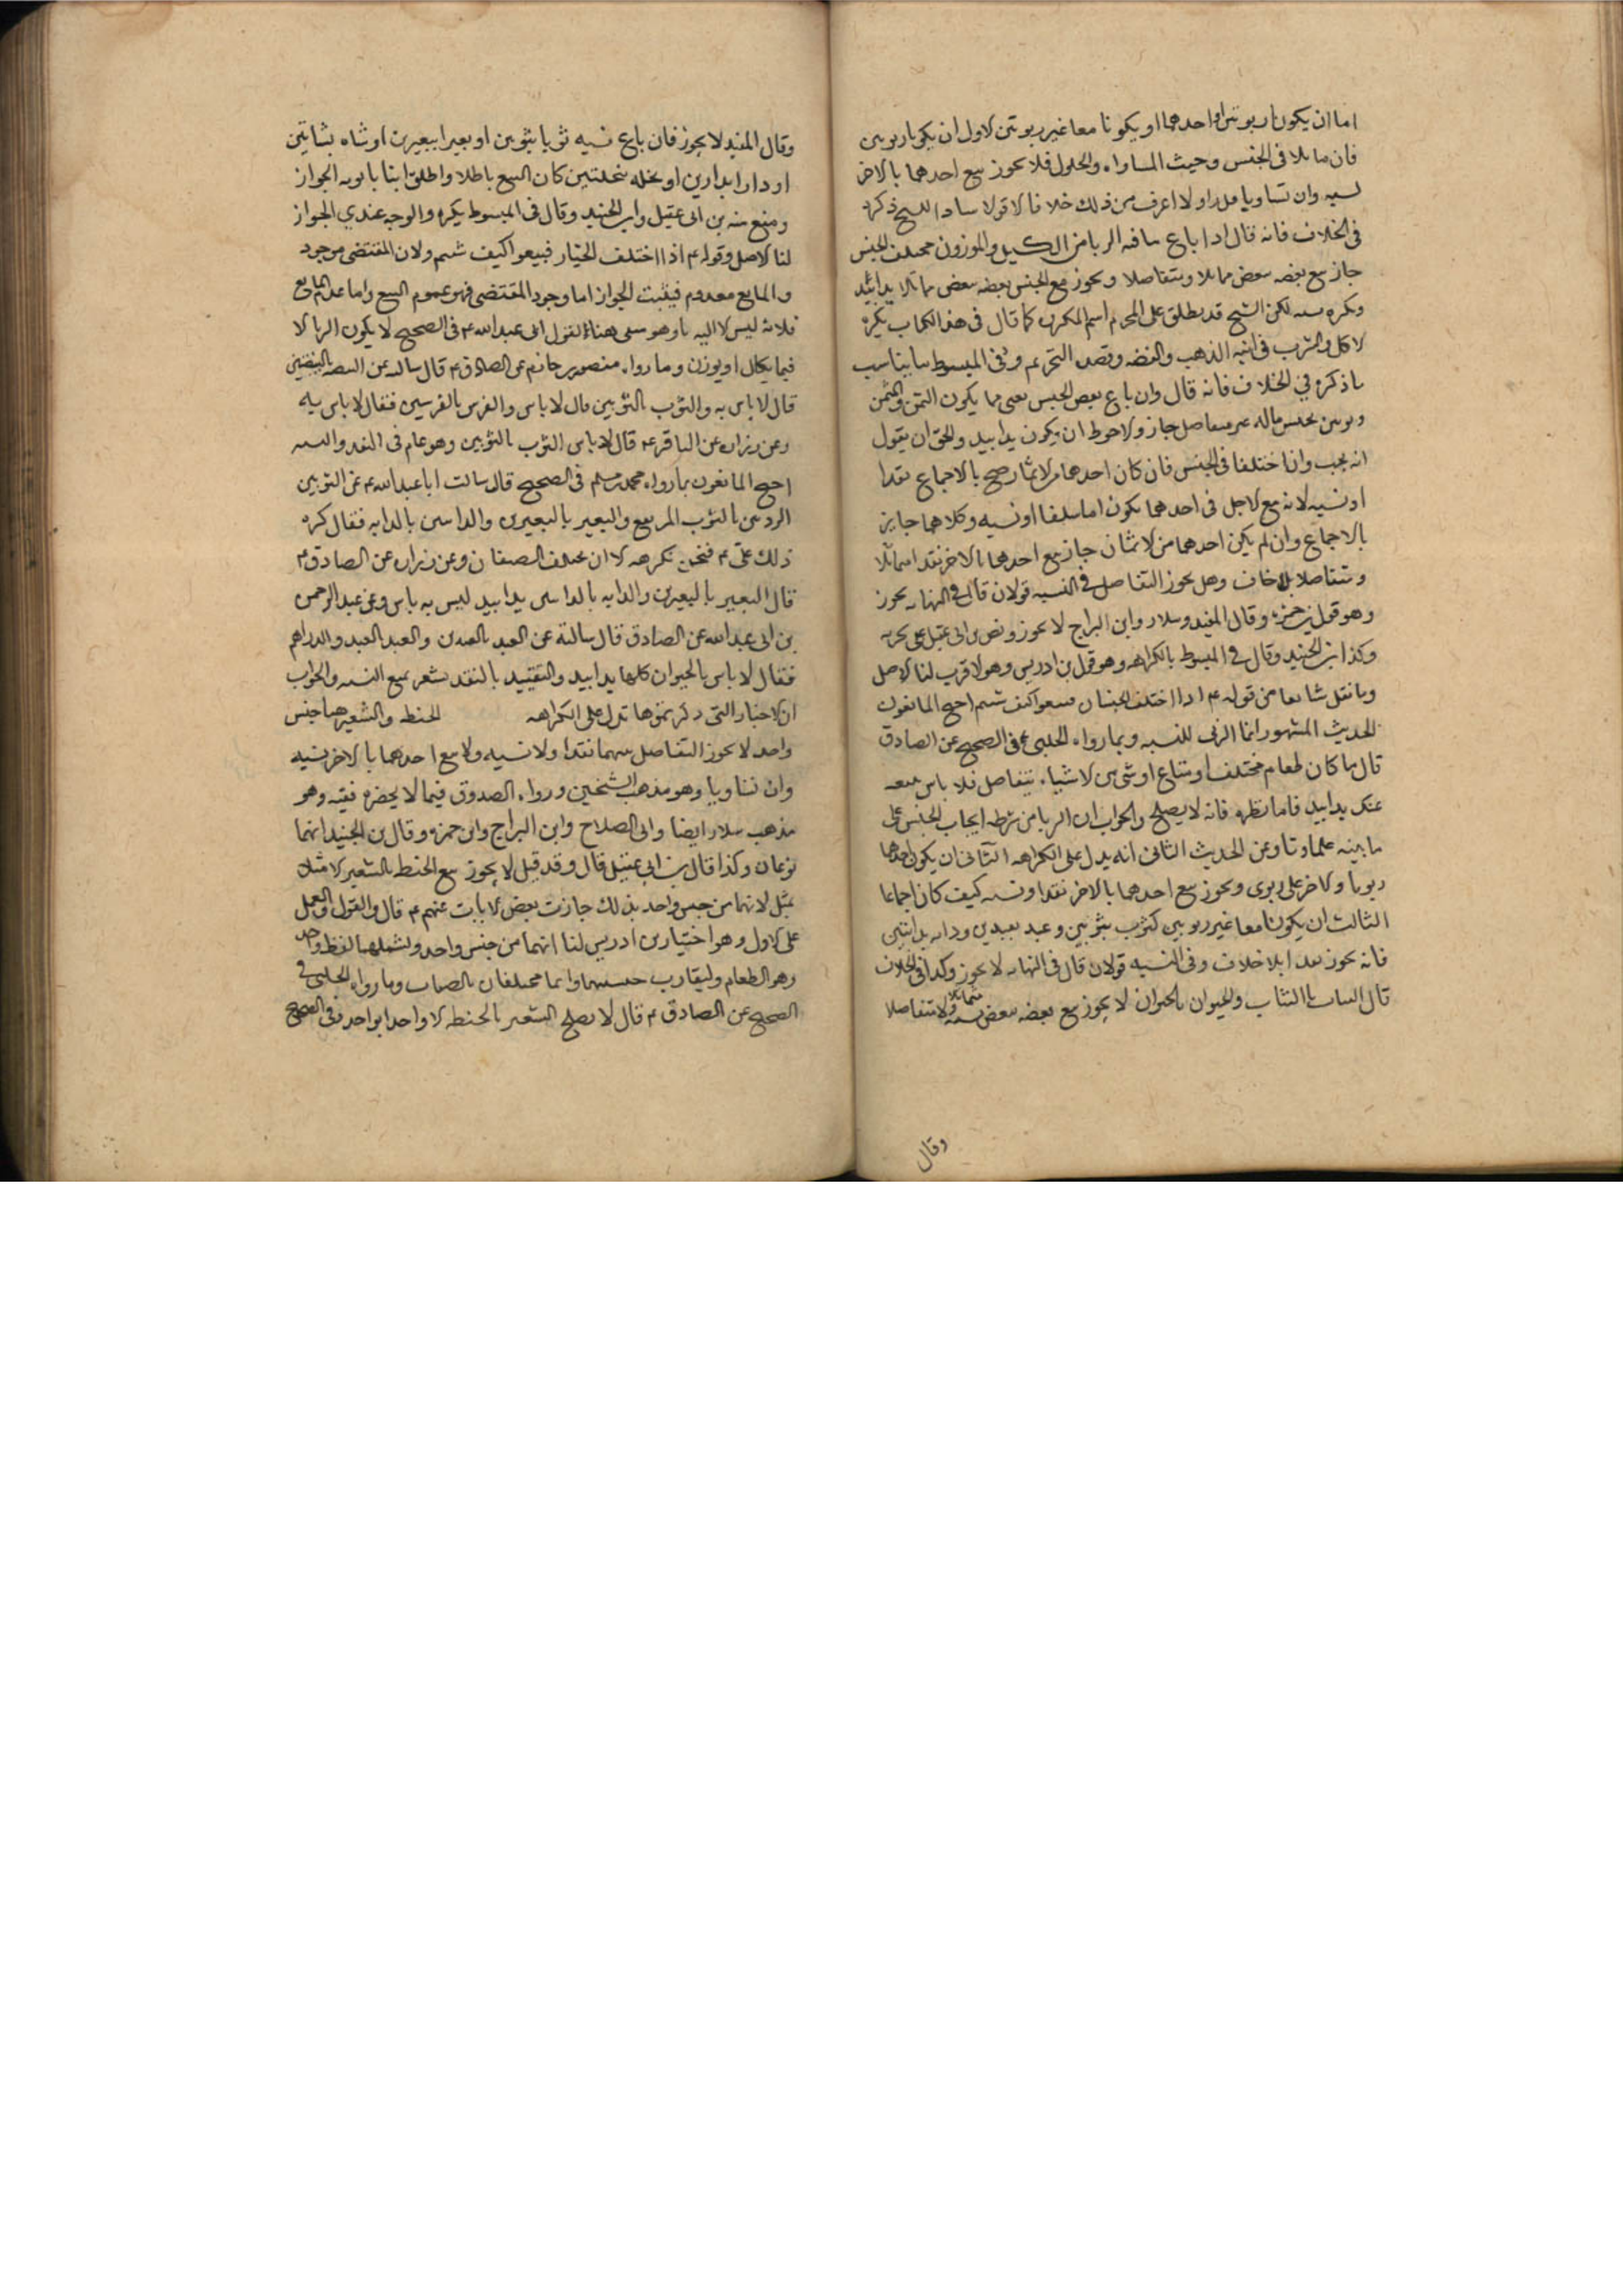 اما ان يكونا ربوتين او احدهما او يكونا معا غير ربوتين الاول ان يكونا ربوتين
فان تماثلا في الجنس وجبت المساواه والحلول فلا يجوز بيع احدهما بالاخر
نسيه وان تساويا قدرا ولا اعرف من ذلك خلافا الا قولا شاذا للشيخ ذكره
في الخلاف فانه قال اذا باع ما فيه الربا من المكيل والموزون مختلف الجنس
جاز بيع بعضه ببعض متماثلا ومتفاضلا ويجوز بيع الجنس بعضه ببعض متماثلا يدا بيد
ويكره نسيه لكن الشيخ قد يطلق على المحرم اسم المكروه كما قال في هذا الكتاب يكره
الاكل والشرب في انيه الذهب والفضه وقصد التحريم وفي المبسوط ما يناسب
ما ذكره في الخلاف فانه قال وان باع بعض الجنس بعض مما يكون الثمن والمثمن
ربوين بجنس مثله غير متفاضل جاز والاحوط ان يكون يدا بيد والحق ان يقول
انه يجب واذا اختلفا في الجنس فان كان احدهما من الاثمان صح بالاجماع نقدا
او نسيه لانه مع الاجل في احدهما يكون اما سلفا او نسيه وكلاهما جايز
بالاجماع وان لم يكن احدهما من الاثمان جاز بيع احدهما بالاخر نقدا متماثلا
ومتفاضلا بلا خلاف وهل يجوز التفاضل في النسيه قولان قال في النهايه يجوز
وهو قول بن حمزه وقال المفيد وسلار وابن البراج لا يجوز ونص بن ابي عقيل على تحريمه
وكذا ابن الجنيد وقال في المبسوط بالكراهه وهو قول بن ادريس وهو الاقرب لنا الاصل
وما نقل شايعا من قوله ع اذا اختلف الجنسان فبيعوا كيف شيتم احتج المانعون
بالحديث المشهور انما الربى للنسيه وبما رواه الحلبي في الصحيح عن الصادق
قال ما كان طعام مختلف او متاع او شي من الاشياء يتفاضل فلا باس ببيعه
مثلين بمثل يدا بيد فاما نظره فانه لا يصلح والجواب ان الربا من شرطه ايجاب الجنس على
ما بينه علماونا وعن الحديث الثاني انه يدل على الكراهه الثاني ان يكون احدهما
ربويا والاخر غير ربوي ويجوز بيع احدهما بالاخر نقدا ونسيه كيف كان اجماعا
الثالث ان يكونا معا غير ربويين كثوب بثوبين وعبد بعبدين ودابه بدابتين
فانه يجوز نقدا بلا خلاف وفي النسيه قولان قال في النهايه لا يجوز وكذا في الخلاف
قال الثياب بالثياب والحيوان بالحيوان لا يجوز بيع بعضه ببعض نسيه متماثلا ولا متفاضلا
وقال
وقال المفيد لا يجوز فان باع نسيه ثوبا بثوبين او بعيرا ببعيرين او شاه بشاتين
او دارا بدارين او نخله بنخلتين كان البيع باطلا واطلق ابنا بابويه الجواز
ومنع منه بن ابي عقيل وابن الجنيد وقال في المبسوط يكره والوجه عندي الجواز
لنا الاصل وقوله ع اذا اختلف الخيار فبيعوا كيف شيتم ولان المقتضي موجود
والمانع معدوم فيثبت الجواز اما وجود المقتضي فهو عموم البيع واما عدم المانع
فلانه ليس الا الربا وهو منتفى هنا لقول ابي عبد الله ع في الصحيح لا يكون الربا الا
فيما يكال او يوزن وما رواه منصور بن حازم عن الصادق ع قال سالته عن البيضه بالبيضتين
قال لا باس به والثوب بالثوبين قال لا باس والفرس بالفرسين فقال لا باس به
وعن زراره عن الباقر ع قال لا باس الثوب بالثوبين وهو عام في النقد والنسيه
احتج المانعون بما رواه محمد بن مسلم في الصحيح قال سالت ابا عبد الله ع عن الثوبين
الرديين بالثوب المرتفع والبعير بالبعيرين والدابتين بالدابه فقال كره
ذلك علي ع فنحن نكرهه الا ان يختلف الصنفان وعن زراره عن الصادق ع
قال البعير بالبعيرين والدابه بالدابتين يدا بيد ليس به باس وعن عبد الرحمن
بن ابي عبد الله عن الصادق قال سالته عن العبد بالعبدين والعبد بالعبد والدراهم
فقال لا باس بالحيوان كلها يدا بيد والتقييد بالنقد يشعر بمنع النسيه والجواب
ان الاخبار التي ذكرتموها تدل على الكراهه الحنطه والشعير هما جنس
واحد لا يجوز التفاضل بينهما نقدا ولا نسيه ولا بيع احدهما بالاخر نسيه
وان تساويا وهو مذهب الشيخين ورواه الصدوق فيما لا يحضره فقيه وهو
مذهب سلار ايضا وابي الصلاح وابن البراج وابن حمزه وقال بن الجنيد انهما
نوعان وكذا قال بن ابي عقيل قال وقد قيل لا يجوز بيع الحنطه بالشعير الا مثلا
بمثل لانهما من جنس واحد بذلك جازت بعض الاخبار عنهم ع قال والقول والعمل
على الاول وهو اختيار بن ادريس لنا انهما من جنس واحد ولشملهما لفظ واحد
وهو الطعام ولتقارب وما رواه الحلبي في
الصحيح عن الصادق ع قال لا يصلح الشعير بالحنطه الا واحدا بواحد وفي الصحيح